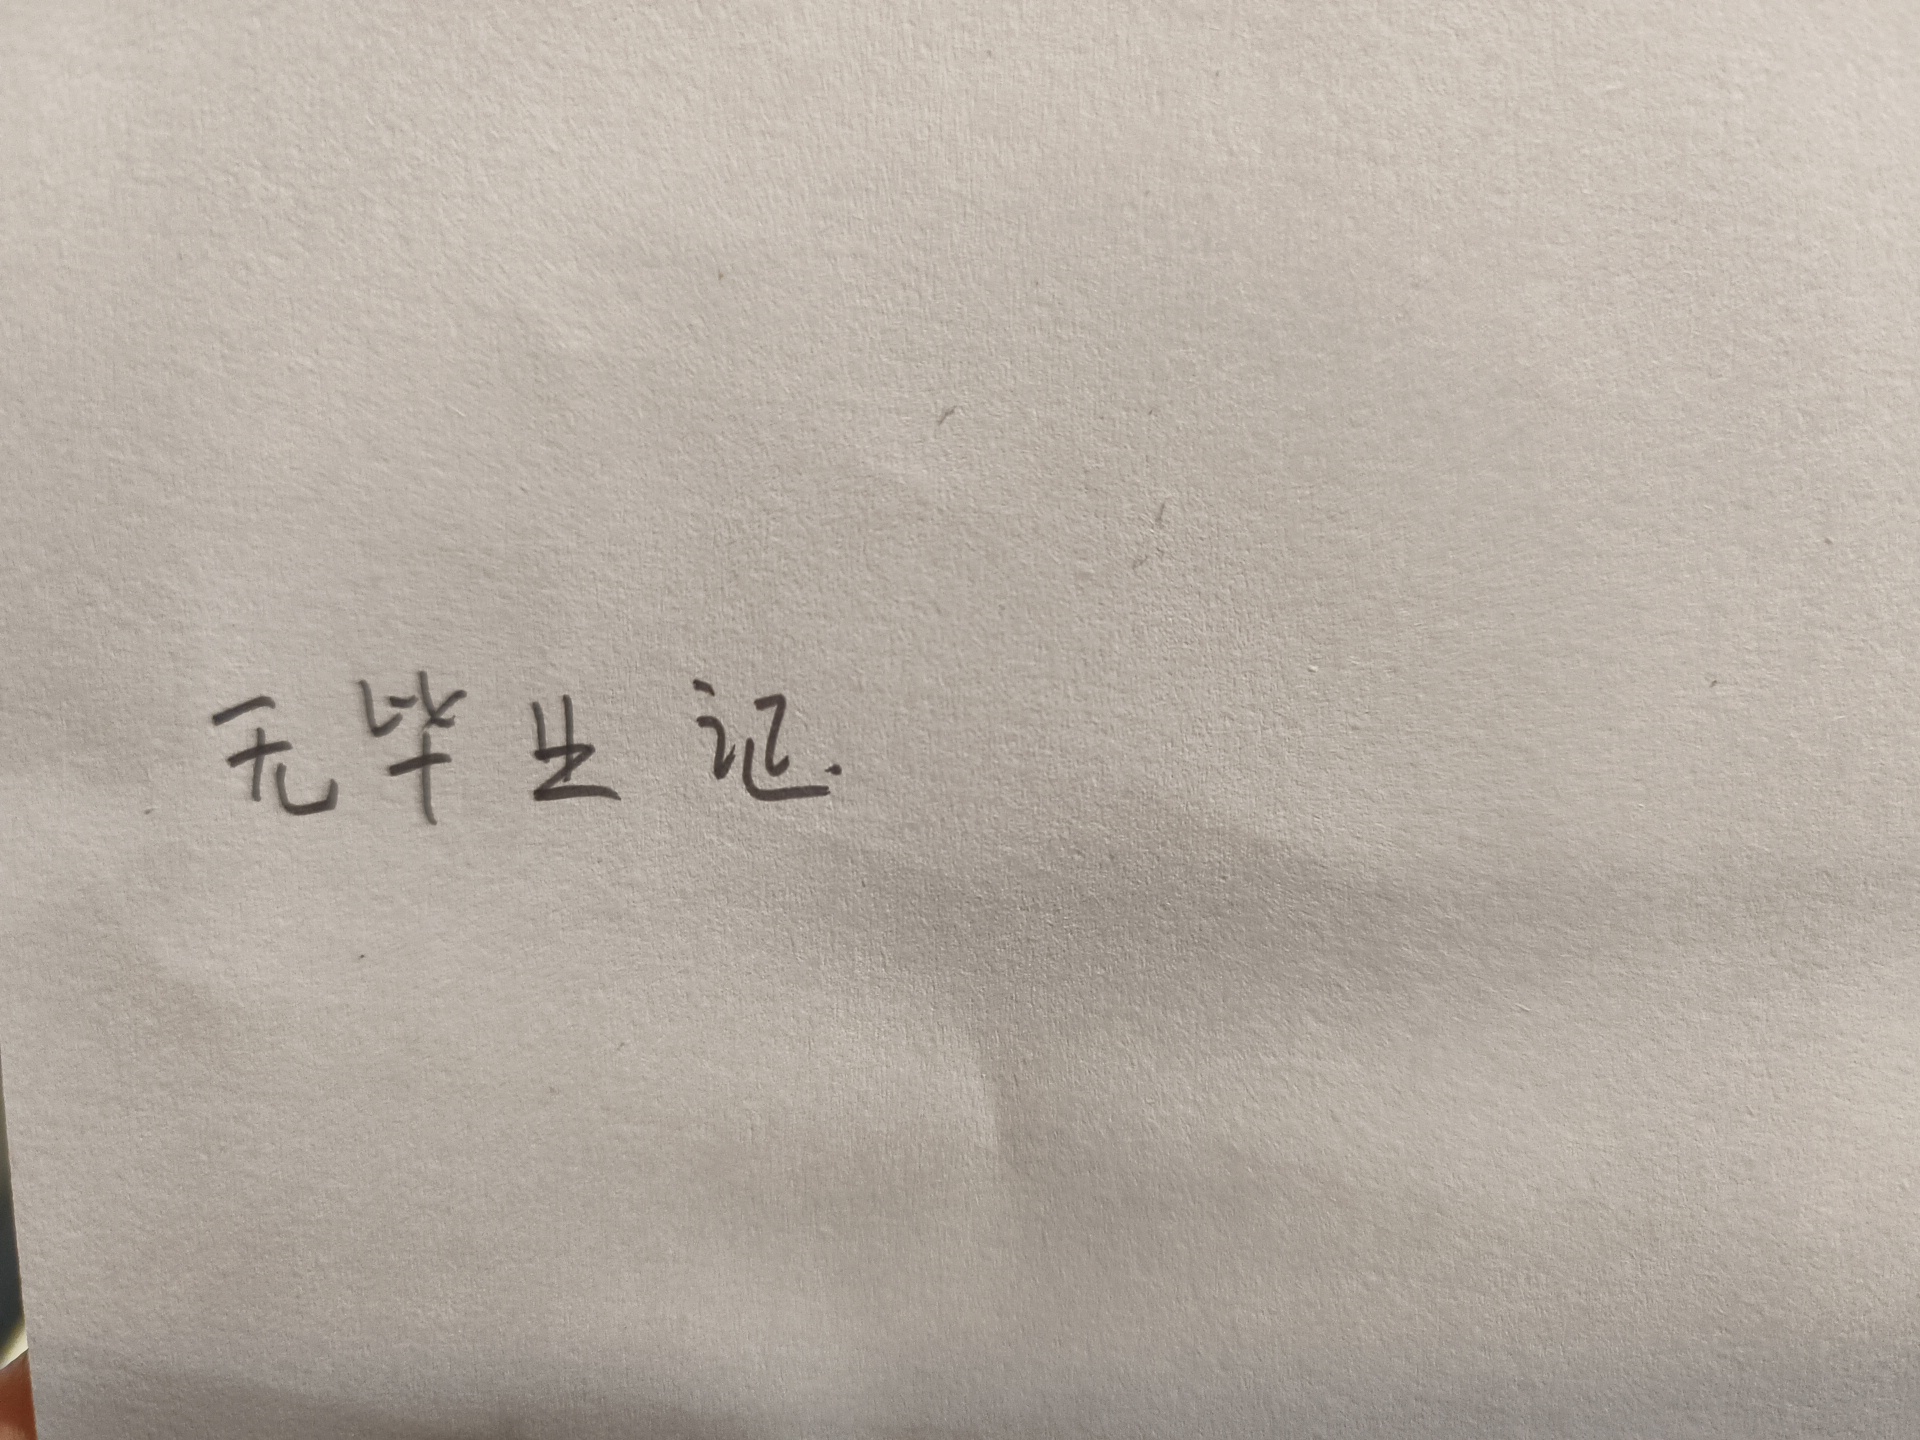 无毕业证.